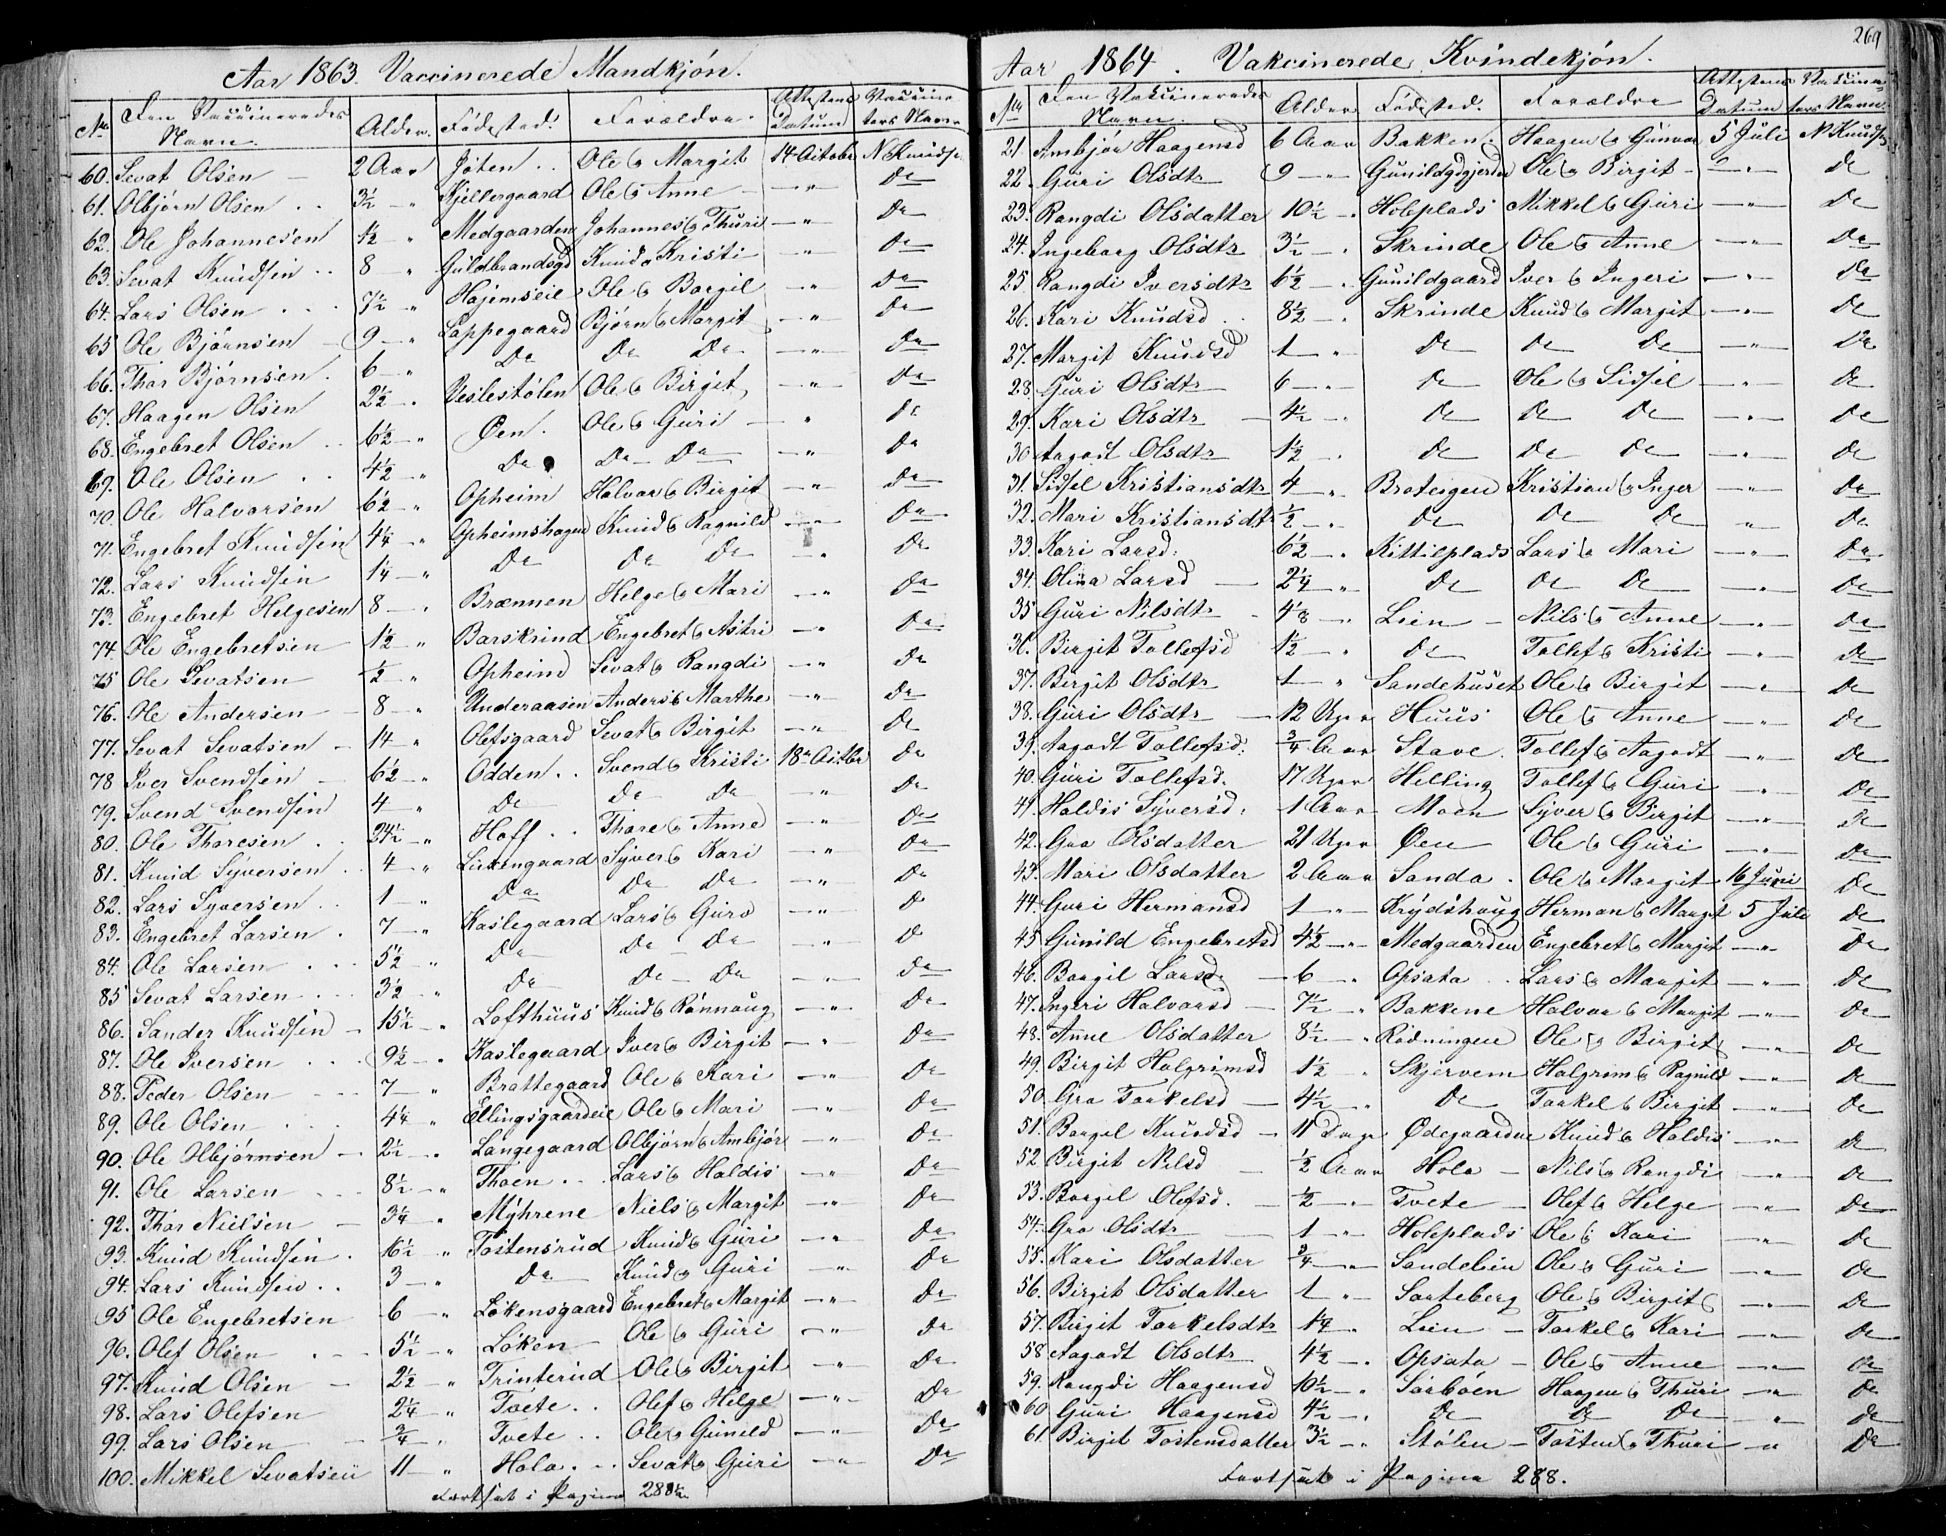 269
Aar 1863. Vaccinerede Mandkjøn.
No. Den Vaccineredes Navn. Alder. Fødested. Forældre. Attestens Datum Vaccinators Navn
60. Sevat Olsen 2 Aar Joten Ole & Margit 14 Octobr N. Knuds.
61. Olbjørn Olsen 3½ " Kjellergaard Ole & Anne " Do
62. Ole Johannesen ½ " Medgaarden Johannes & Thuri " Do
63. Sevat Knudsen 8 " Guldbrandsgd Knud & Kristi " Do
64. Lars Olsen 7½ " Hojemseie Ole & Borgil " Do
65 Ole Bjørnsen 9 " Loppegaard Bjørn & Margit " Do
66. Thor Bjørnsen. 6 " Do Do Do " Do
67. Haagen Olsen 2½ " Veslestølen Ole & Birgit " Do
68. Engebret Olsen 6½ " Øen. Ole & Guri " Do
69. Ole Olsen 4½ " Do Do Do " Do
70. Ole Halvorsen 6½ " Opheim Halvor & Birgit " Do
71. Engebret Knudsen 4¼ " Opheimshagen Knud & Ragnild " Do
72. Lars Knudsen 1¼ " Do Do Do " Do
73. Engebret Helgesen 8 " Brænnen Helge & Mari " Do
74. Ole Engebretsen 1½ " Barskrind Engebret & Astri " Do
75 Ole Sevatsen ½ " Opheim Sevat & Rangdi " Do
76. Ole Andersen 8 " Underaasen Anders & Marthe " Do
77. Sevat Sevatsen 14 " Olefsgaard Sevat & Birgit " Do
78 Iver Svendsen 6½ " Odden Svend & Kristi 18 Octbr Do
79. Svend Svendsen 4 " Do Do Do " Do
80. Ole Thoresen " Hoff Thore & Anne " Do
81. Knud Syversen 4 " Syver & Kari " Do
82. Lars Syversen 1 " Do Do Do " Do
83. Engebret Larsen 7 " Kaslegaard Lars & Guro " Do
84. Ole Larsen 5½ " Do Do Do " Do
85 Sevat Larsen 3½ " Do Do Do " Do
86. Sander Knudsen 15½ " Lofthuus Knud & Rønnoug " Do
87. Ole Iversen 9½ " Kaslegaard Iver & Birgit " Do
88. Peder Olsen 7 " Brattegaard Ole & Kari " Do
89. Ole Olsen 4¼ " Ellingsgaardeie Ole & Mari " Do
90. Ole Olbjørnsen 2½ " Langegaard Olbjørn & Ambjør " Do
91. Ole Larsen 8½ " Thoen Lars & Haldis " Do
92. Thor Nielsen 3¼ " Myhrene Niels & Margit " Do
93. Knud Knudsen 16½ " Tostensrud Knud & Guri " Do
94. Lars Knudsen 3 " Do Knud & Guri " Do
95 Ole Engebretsen 6 " Løkensgaard Engebret & Margit " Do
96. Olef Olsen 5½ " Løken Ole & Guri " Do
97. Knud Olsen 2½ " Trinterud Ole & Birgit " Do
98. Lars Olefsen 2¼ " Tvete Olef & Helge " Do
99. Lars Olsen ¾ " Tvete Ole & Gunild " Do
100. Mikkel Sevatsen 11 " Hola Sevat & Guri " Do
Fortsat i Pagina 288½
Aar 1864. Vakcinerede Kvindekjøn.
No Den Vakcineredes Navn. Alder Fødested. Forældre Attestens Datum Vakcinators Navn
21. Ambjør Haagensd 6 Aar Bakken. Haagen & Gunvor 5 Juli N Knuds
22. Guri Olsdtr 9 " Gunildgdgjerdet Ole & Birgit " Do
23. Rangdi Olsdatter 10½ " Holeplads Mikkel & Guri " Do
24. Ingeborg Olsdtr 3½ " Skrinde Ole & Anne " Do
25 Rangdi Iversdtr 6½ " Gunildgaard Iver & Ingeri " Do
26. Kari Knudsd 8½ " Skrinde Knud & Margit " Do
27. Margit Knudsd 1 " Do Do Do " Do
28. Guri Olsdtr 6 " Do Ole & Sidsel " Do
29. Kari Olsdtr 4½ " Do Do Do " Do
30 Aagodt Olsdtr 1½ " Do Do Do " Do
31. Sidsel Kristiansdtr 4 " Brotengen Kristian & Inger " Do
32. Mari Kristiansdtr ½ " Do Do Do " Do
33. Kari Larsd. 6½ " Kittilplads Lars & Mari " Do
34. Olina Larsd 2¼ " Do Do Do " Do
35 Guri Nilsdtr " Lien Nils & Anne " Do
36. Birgit Tollefsd 1½ " Do Tollef & Kristi " Do
37. Birgit Olsdtr 1 " Sandehuset Ole & Birgit " Do
38. Guri Olsdtr 12 Uger Huus Ole & Anne " Do
39. Aagodt Tollefsd. ¾ Aar Stave. Tollef & Aagodt " Do
40. Guri Tollefsd. 17 Uger Helling Tollef & Guri " Do
41. Haldis Syversd. 1 Aar Moen Syver & Birgit " Do
42. Gro Olsdatter 21 Uger Øen Ole & Guri " Do
43. Mari Olsdatter 2 Aar Sanda. Ole & Margit 16 Juni Do
44. Guri Hermansd 1 " Krydshoug Herman & Margit 5 Juli Do
45 Gunild Engebretsd 4½ " Medgaarden Engebret & Margit " Do
46. Borgil Larsd. 6 " Opsata Lars & Margit " Do
47. Ingeri Halvorsd 7½ " Bakkene Halvor & Margit " Do
48. Anne Olsdatter 8½ " Rødningen Ole & Birgit " Do
49. Birgit Halgrimsd 1½ " Skjervem Halgrim & Ragnild " Do
50. Gro Torkelsd 4½ " Do Torkel & Birgit " Do
51. Borgil Knudsd 11 Dage Ødegaarden Knud & Haldis " Do
52 Birgit Nilsd ½ Aar Hola Nils & Rangdi " Do
53. Borgil Olefsd. ½ " Tvete Olef & Helge " Do
54. Gro Olsdtr 1 " Holeplads Ole & Kari " Do
55. Kari Olsdatter ¾ " Sandelien Ole & Guri " Do
56. Birgit Olsdatter 1 " Sorteberg Ole & Birgit " Do
57. Birgit Torkelsdtr " Lien Torkel & Kari " Do
58 Aagodt Olsdtr 4½ " Opsata Ole & Anne " Do
59. Rangdi Haagensd 10½ " Sørbøen Haagen & Thuri " Do
60 Guri Haagensd 4½ " Do Do Do " Do
61. Birgit Tostensdatter 3½ " Stølen Tosten & Thuri " Do
Fortsat i Pagina 288.